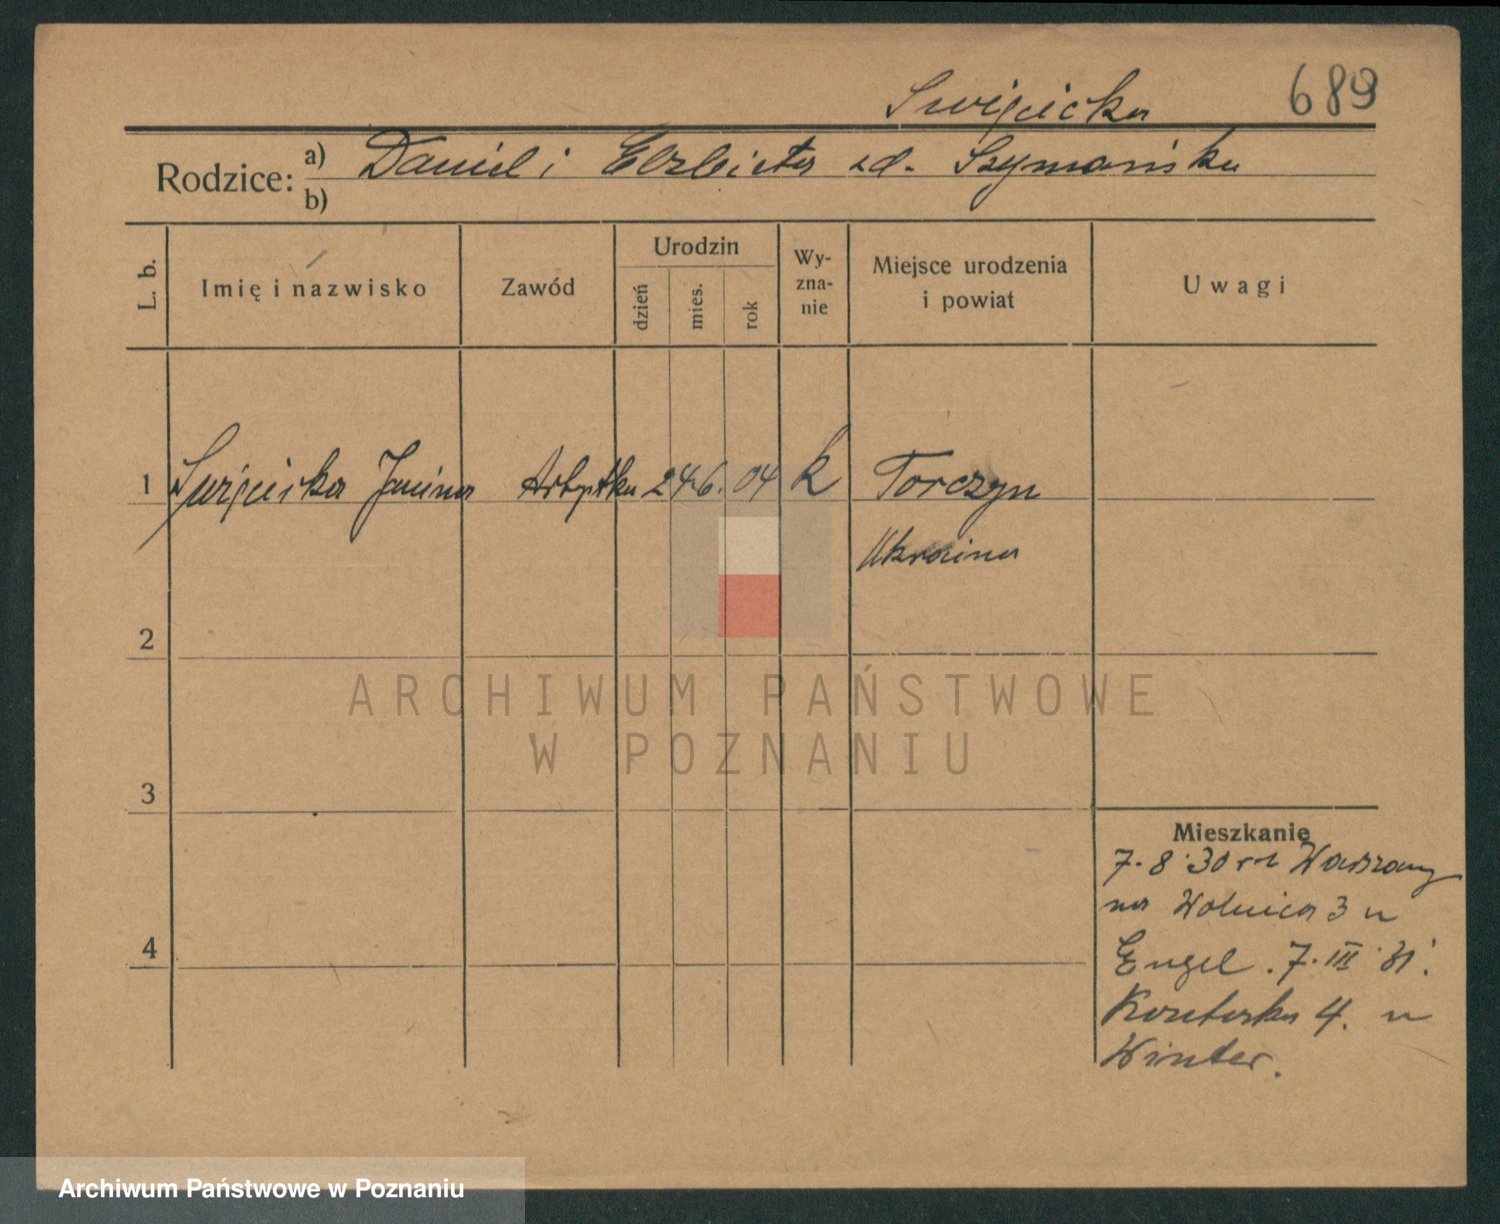 Swięcicka 689
Rodzice: a) Daniel i Elzbieta zd. Szymańska
b)
L. b. Imię i nazwisko Zawód Urodzin dzień mies. rok Wyznanie Miejsce urodzenia i powiat Uwagi
1 Swięcicka Janina Artystka 24. 6. 04 k Torczyn
Ukraina
2
ARCHIWUM PAŃSTWOWE
W POZNANIU
3
Mieszkanie
7. 8. 30 r z Warszawy
na Wolnica 3 u
4
Engel. 7. III 31.
Koziarska 4. u
Winter.
Archiwum Państwowe w Poznaniu